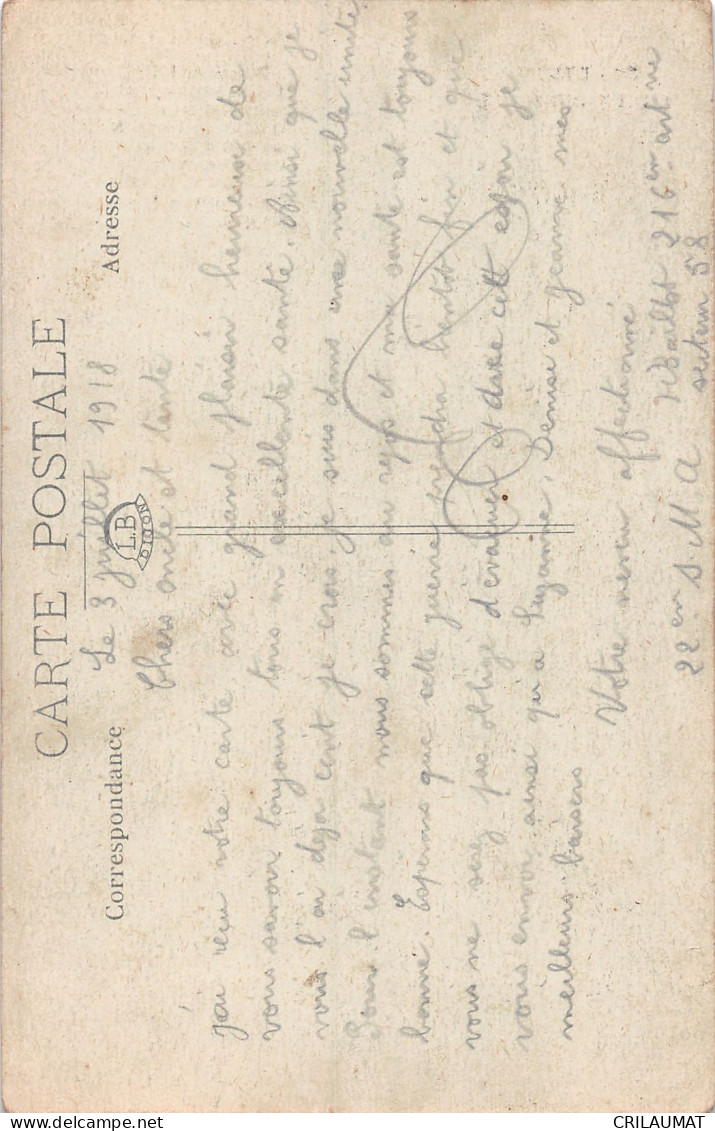 CARTE POSTALE
Correspondance
Adresse
L.B
DIJON
Le 3 juillet 1918
Chers oncle et tante
j'ai reçu votre carte avec grand plaisir heureux de
vous savoir toujours tous en excellente santé. Ainsi que je
vous l'ai deja ecrit je crois, je suis dans une nouvelle unité
Pour l'instant nous sommes au repos et ma santé est toujours
bonne. Esperons que cette guerre prendra bientôt fin et que
vous ne serez pas obligé d'evacuer et dans cett espoir je
vous envoi ainsi qu'a Suzanne, Denise et Jeanne mes
meilleurs baisers
Votre neveu affectionné
216em art ne
22em S.M.A secteur 58
delcampe.net
CRILAUMAT